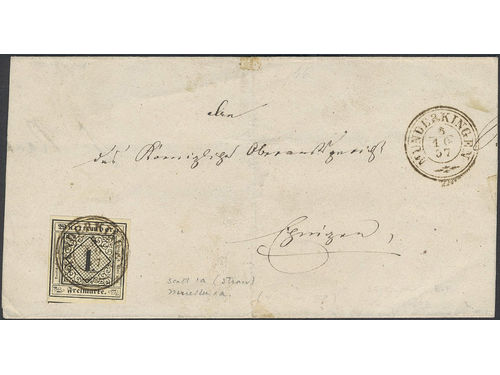 An
das Königliche Oberamtsgericht
Ehingen,
MUNDERKINGEN
6
10
57
Württemberg
1
Freimarke.
Scott 1a (Straw)
Michel 1a